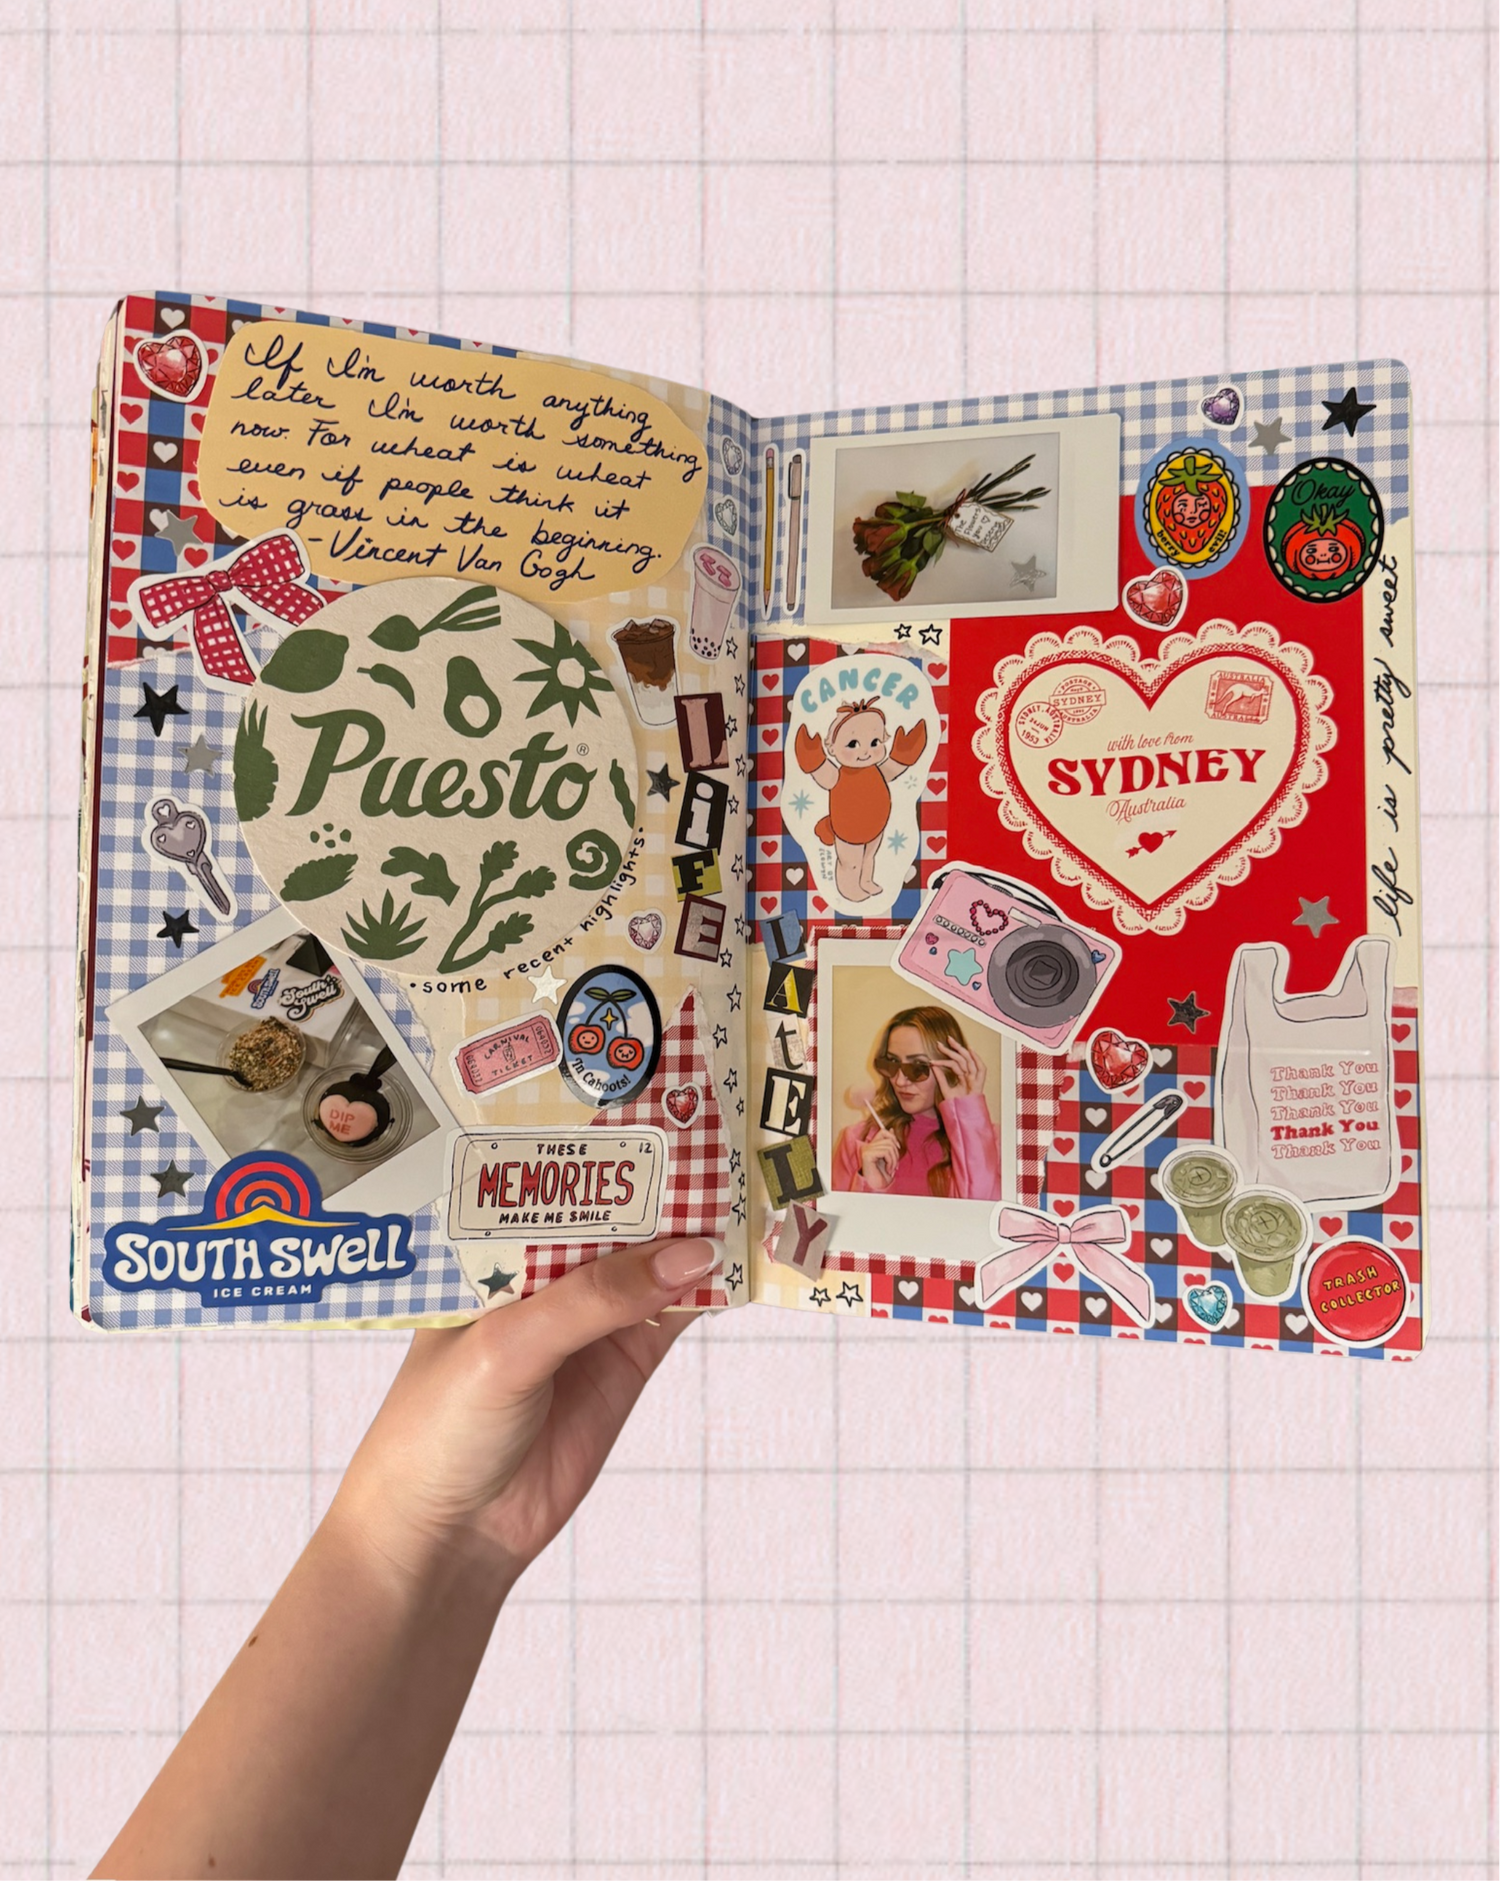 If I'm worth anything
later I'm worth something
now. For wheat is wheat
even if people think it
is grass in the beginning.
-Vincent Van Gogh
Puesto®
• some recent highlights •
LiFE
CARNIVAL
TICKET
In Cahoots!
THESE 12
MEMORIES
MAKE ME SMILE
South Swell
DIP
ME
SOUTH SWELL
ICE CREAM
LAtELY
CANCER
berry evil
Okay
life is pretty sweet
SYDNEY
AUSTRALIA
with love from
SYDNEY
Australia
Thank You
Thank You
Thank You
Thank You
Thank You
TRASH
COLLECTOR